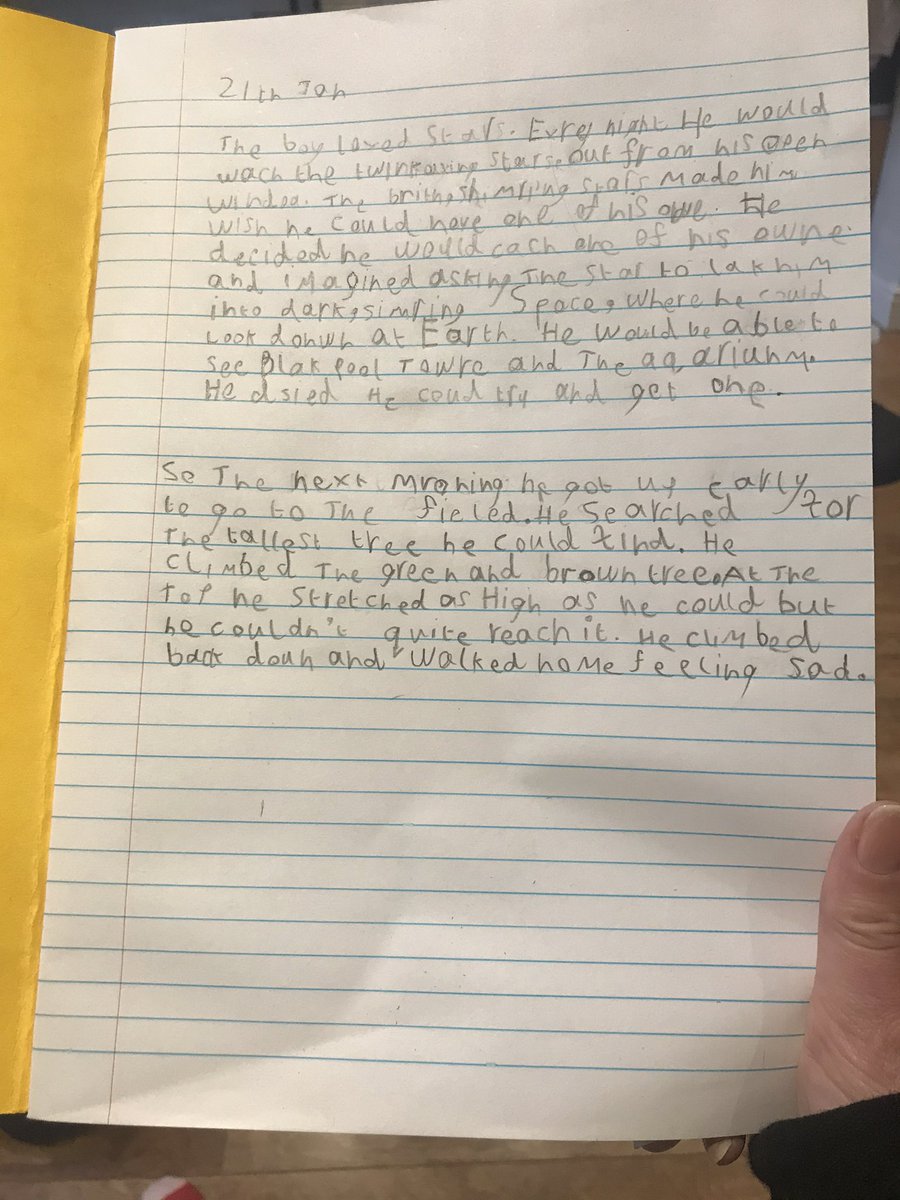 21th Jan
The boy loved stars. Evrey night He would
wach the stars. out from his open
windea. The brith, shimring stars made him
wish he could have one of his owne. He
decided he would cach one of his owne.
and imagined asking The star to tak him
into dark, simring Space, where he could
Look donwn at Earth. He would be able to
see Blak pool Towre and The aqariunm.
He dsied He coud try and get one.
So The next mroning he got up early
to go to The fieled. He searched for
The tallest tree he could find. He
climbed The green and brown tree. At The
Top he stretched as High as he could but
he couldn't quite reach it. He climbed
back doun and walked home feeling sad.